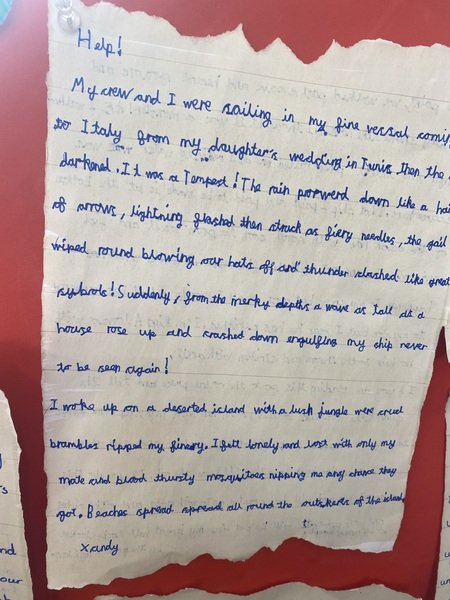 Help!
My crew and I were sailing in my fine vessal comin
to Italy from my daughter's wedding in Tunis then the
darkened. It was a Tempest! The rain porwerd down like a hai
of arrows, lightning flashed then struck as fiery needles, the gail
wiped round blowing our hats off and thunder clashed like great
sybrols! Suddenly, from the merky depths a wave as tall at a
house rose up and crashed down engulfing my ship never
to be seen again!
I woke up on a deserted island with a lush jungle were cruel
brambles ripped my finery. I felt lonely and lost with only my
mate and blood thursty mosquitoes nipping me any chance they
got. Beaches spread spread all round the outskerts of the island
Xandy